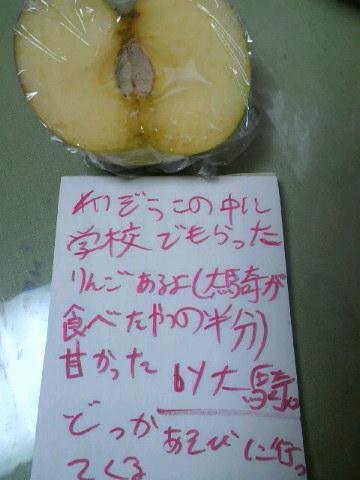 れいぞうこの中に
学校でもらった
りんごあるよ(大騎が
食べたやつの半分)
甘かった by大騎。
どっかあそびに行っ
てくる